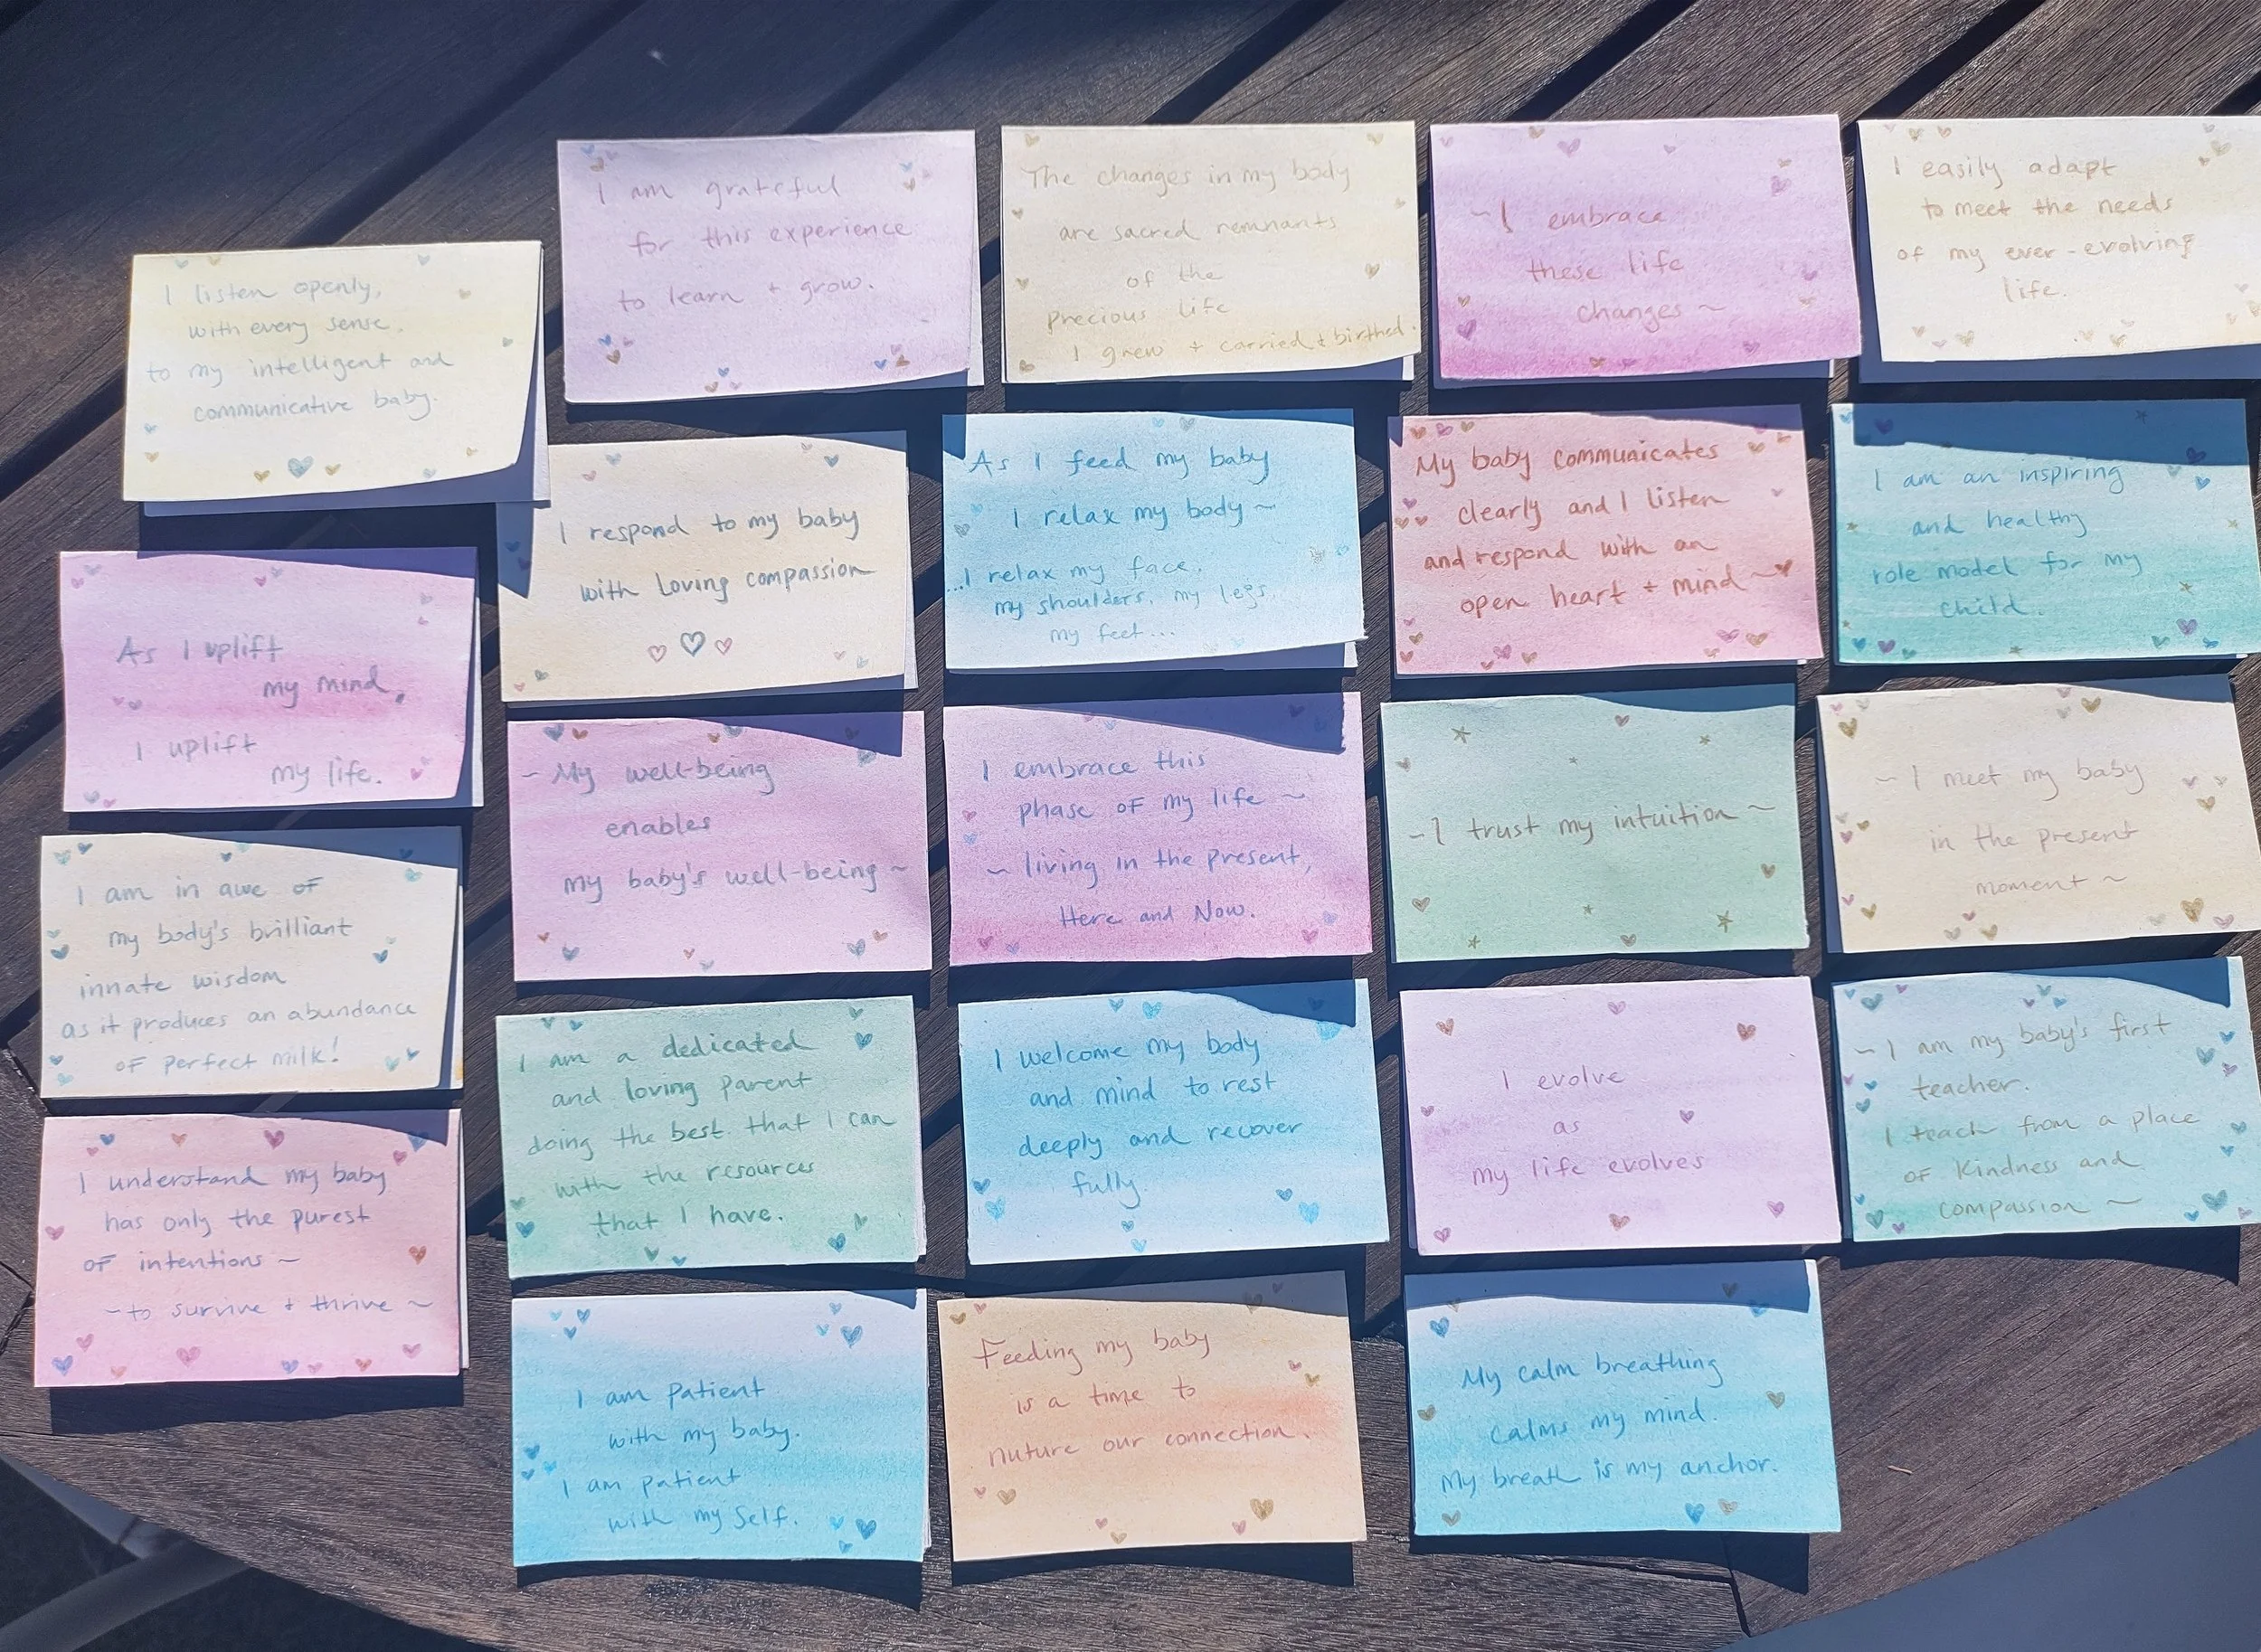 I listen openly,
with every sense,
to my intelligent and
communicative baby.
As I uplift
my mind,
I uplift
my life.
I am in awe of
my body's brilliant
innate wisdom
as it produces an abundance
of perfect milk!
I understand my baby
has only the purest
of intentions ~
~ to survive + thrive ~
I am grateful
for this experience
to learn + grow.
I respond to my baby
with Loving compassion
~ My well-being
enables
my baby's well-being ~
I am a dedicated
and loving parent
doing the best that I can
with the resources
that I have.
I am patient
with my baby.
I am patient
with my Self.
The changes in my body
are sacred remnants
of the
precious life
I grew + carried + birthed.
As I feed my baby
I relax my body ~
...I relax my face,
my shoulders, my legs,
my feet...
I embrace this
phase of my life ~
~ living in the present,
Here and Now.
I welcome my body
and mind to rest
deeply and recover
fully.
Feeding my baby
is a time to
nuture our connection.
~ I embrace
these life
changes ~
My baby communicates
clearly and I listen
and respond with an
open heart + mind ~
~ I trust my intuition ~
I evolve
as
my life evolves
My calm breathing
calms my mind.
My breath is my anchor.
I easily adapt
to meet the needs
of my ever-evolving
life.
I am an inspiring
and healthy
role model for my
child.
~ I meet my baby
in the present
moment ~
~ I am my baby's first
teacher.
I teach from a place
of Kindness and
compassion ~